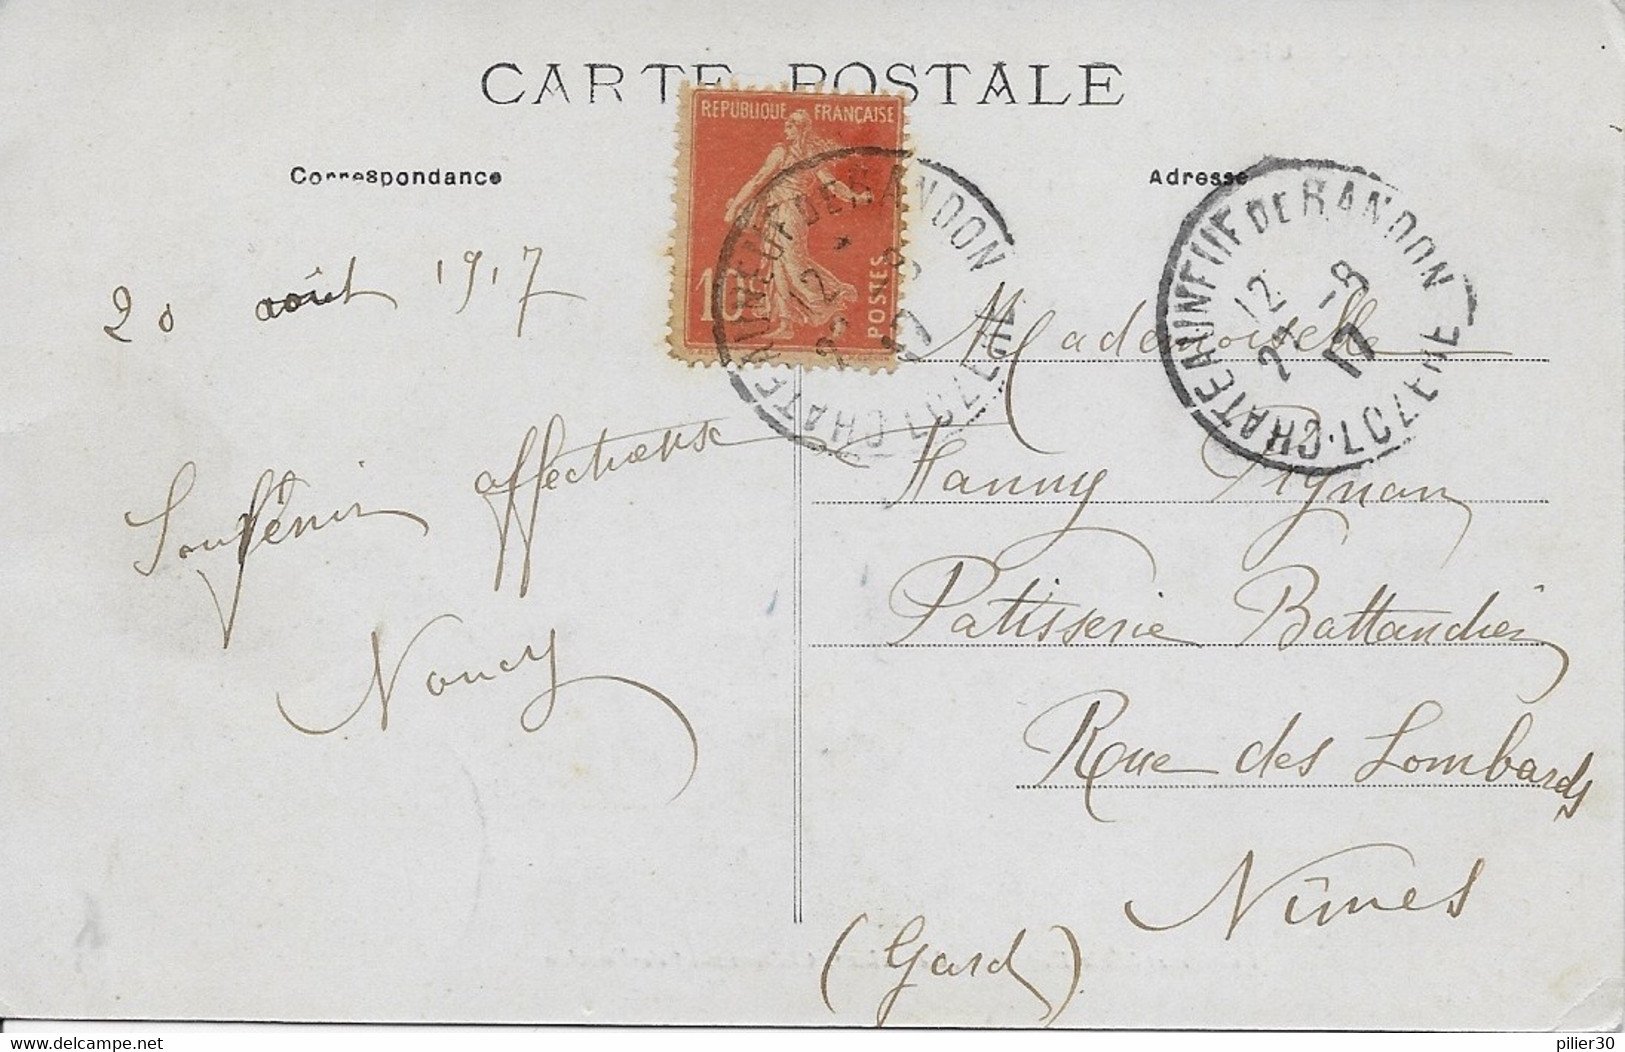 CARTE POSTALE
REPUBLIQUE FRANÇAISE
10
POSTES
CHATEAUNEUF DE RANDON
LOZERE
12
Correspondance
Adresse
CHATEAUNEUF DE RANDON · LOZERE
12
-8
17
20 août 1917
Souvenir affectueux
Nancy
Mademoiselle
Hanny Pignan
Patisserie Battandier
Rue des Lombards
Nîmes
(Gard)
www.delcampe.net
pilier30